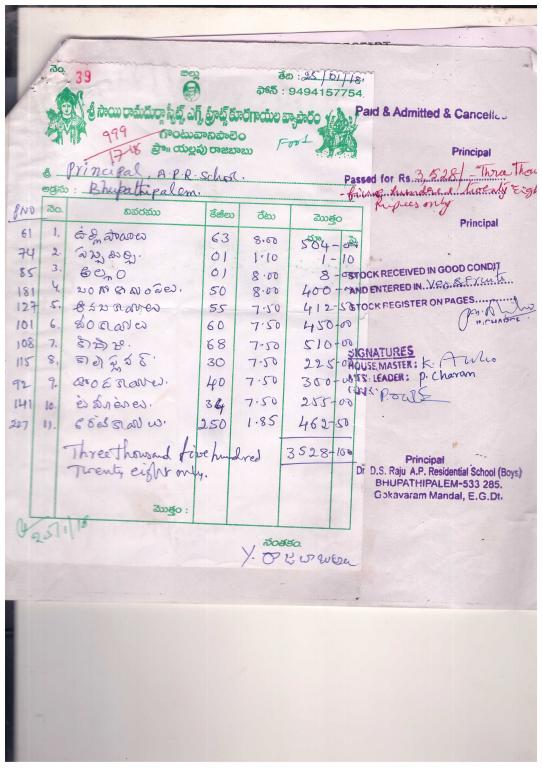 నెం. 39
బిల్లు
తేది : 25/01/18
ఫోన్ : 9494157754
శ్రీ సాయి రామదుర్గా స్వీట్స్ ఎగ్స్ ఫ్రూట్స్ కూరగాయల వ్యాపారం
999
17-18
గొంటువానిపాలెం
ప్రొ॥ యల్లపు రాజబాబు
శ్రీ Principal, A.P.R. School.
అడ్రసు : Bhupathipalem.
PNO నెం. వివరము కేజీలు రేటు మొత్తం
61 1. ఉల్లిపాయలు 63 8.00 504-00
74 2. 01 1.10 1-10
85 3. అల్లం 01 8.00 8-00
181 4. బంగాళాదుంపలు. 50 8.00 400-00
127 5. ఆనబకాయలు 55 7.50 412-50
101 6. వంకాయలు 60 7.50 450-00
108 7. 68 7.50 510-00
115 8. కాలీఫ్లవర్ 30 7.50 225-00
92 9. దొండకాయలు. 40 7.50 300-00
141 10. టమాటాలు. 34 7.50 255-00
227 11. అరటికాయలు. 250 1.85 462-50
Three thousand five hundred 3528-100
Twenty eight only.
మొత్తం :
25/1/18
సంతకం.
Y. రాజబాబు
Paid & Admitted & Cancelle
Principal
Passed for Rs. 3,528/- Three Thou
five hundred twenty Eigh
Rupees only
Principal
STOCK RECEIVED IN GOOD CONDIT
AND ENTERED IN Veg & Fruits
STOCK REGISTER ON PAGES
SIGNATURES
HOUSE MASTER :
LEADER : P. Charan
Principal
Dr. D.S. Raju A.P. Residential School (Boys)
BHUPATHIPALEM-533 285.
Gokavaram Mandal, E.G.Dt.